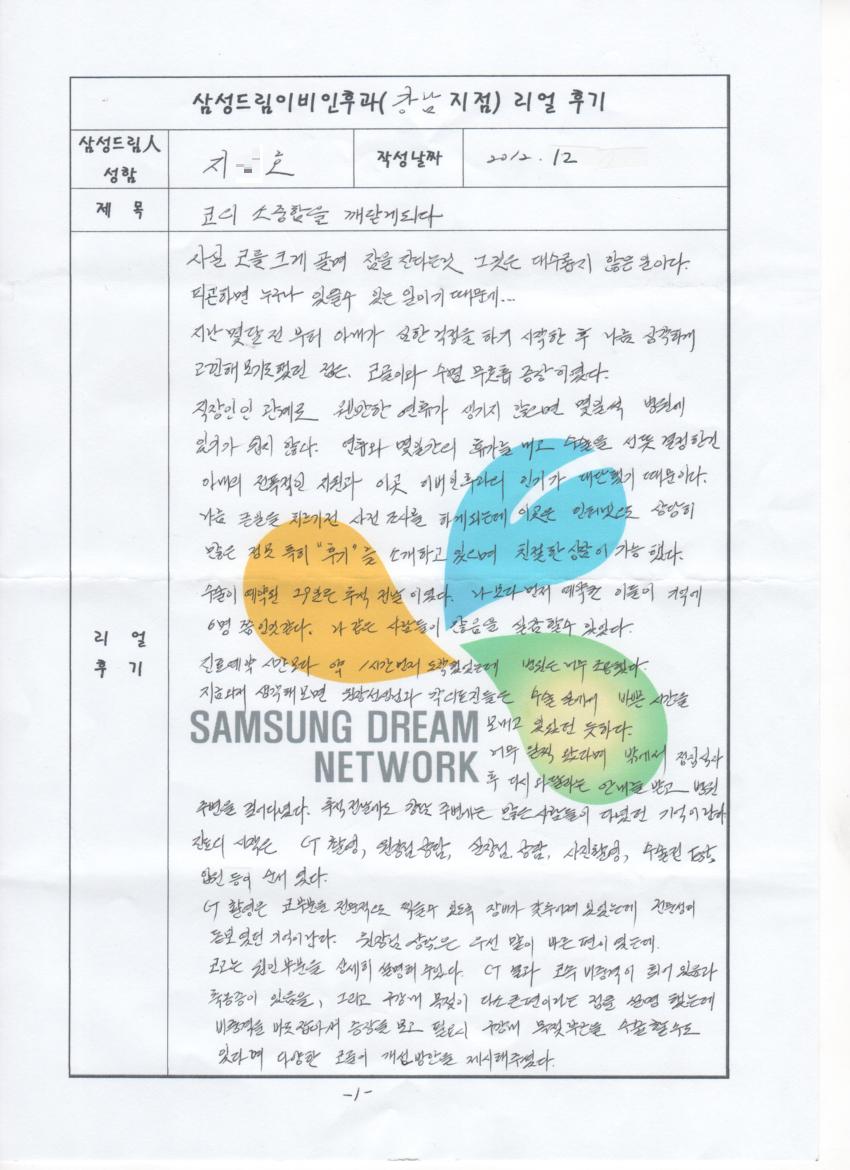 삼성드림이비인후과(강남 지점) 리얼 후기
삼성드림人 성함
지 호
작성날짜
2012. 12
제 목
코의 소중함을 깨닫게되다
리 얼 후 기
사실 코를 크게 골며 잠을 잔다는것 그것은 대수롭지 않은 일이다.
피곤하면 누구나 있을수 있는 일이기 때문에...
지난 몇달 전 부터 아내가 심한 걱정을 하기 시작한 후 나름 심각하게
고민해 보기도했던 점은, 코골이와 수면 무호흡 증상 이였다.
직장인인 관계로 웬만한 연휴가 생기지 않으면 몇일씩 병원에
있기가 쉽지 않다. 연휴와 몇일간의 휴가를 내고 수술을 선뜻 결정한건
아내의 전폭적인 지원과 이곳 이비인후과의 인기가 대단했기 때문이다.
나름 큰일을 치르기전 사전 조사를 하게되는데 이곳은 인터넷으로 상당히
많은 정보 특히 "후기"를 소개하고 있으며 친절한 상담이 가능 했다.
수술이 예약된 29일은 추석 전날 이였다. 나보다 먼저 예약한 이들이 기억에
6명 쯤인것같다. 나 같은 사람들이 많음을 실감할수 있었다.
진료예약 시간보다 약 1시간먼저 도착했었는데 병원은 너무 조용했다.
지금와서 생각해보면 원장선생님과 각 의료진들은 수술 실에서 바쁜 시간을
보내고 있었던 듯하다.
SAMSUNG DREAM
NETWORK
너무 일찍 왔다며 밖에서 점심식사
후 다시 와달라는 안내를 받고 병원
주변을 걸어다녔다. 추석전날에도 강남 주변에는 많은 사람들이 다녔던 기억이 난다.
진료의 시작은 CT 촬영, 원장님 상담, 실장님 상담, 사진촬영, 수술전
입원 등의 순서 였다.
CT 촬영은 코부분을 전문적으로 찍을수 있도록 장비가 갖추어져 있었는데 전문성이
돋보였던 기억이난다. 원장님 상담은 우선 말이 빠른 편이 였는데.
코고는 원인부분을 상세히 설명해 주었다. CT 결과 코의 비중격이 휘어 있음과
축농증이 있음을, 그리고 구강내 목젖이 다소큰편이라는 점을 설명 했는데
비중격을 바로 잡아서 증상을 보고 필요시 구강내 목젖부근을 수술할수도
있다며 다양한 코골이 개선방안을 제시해주셨다.
-1-